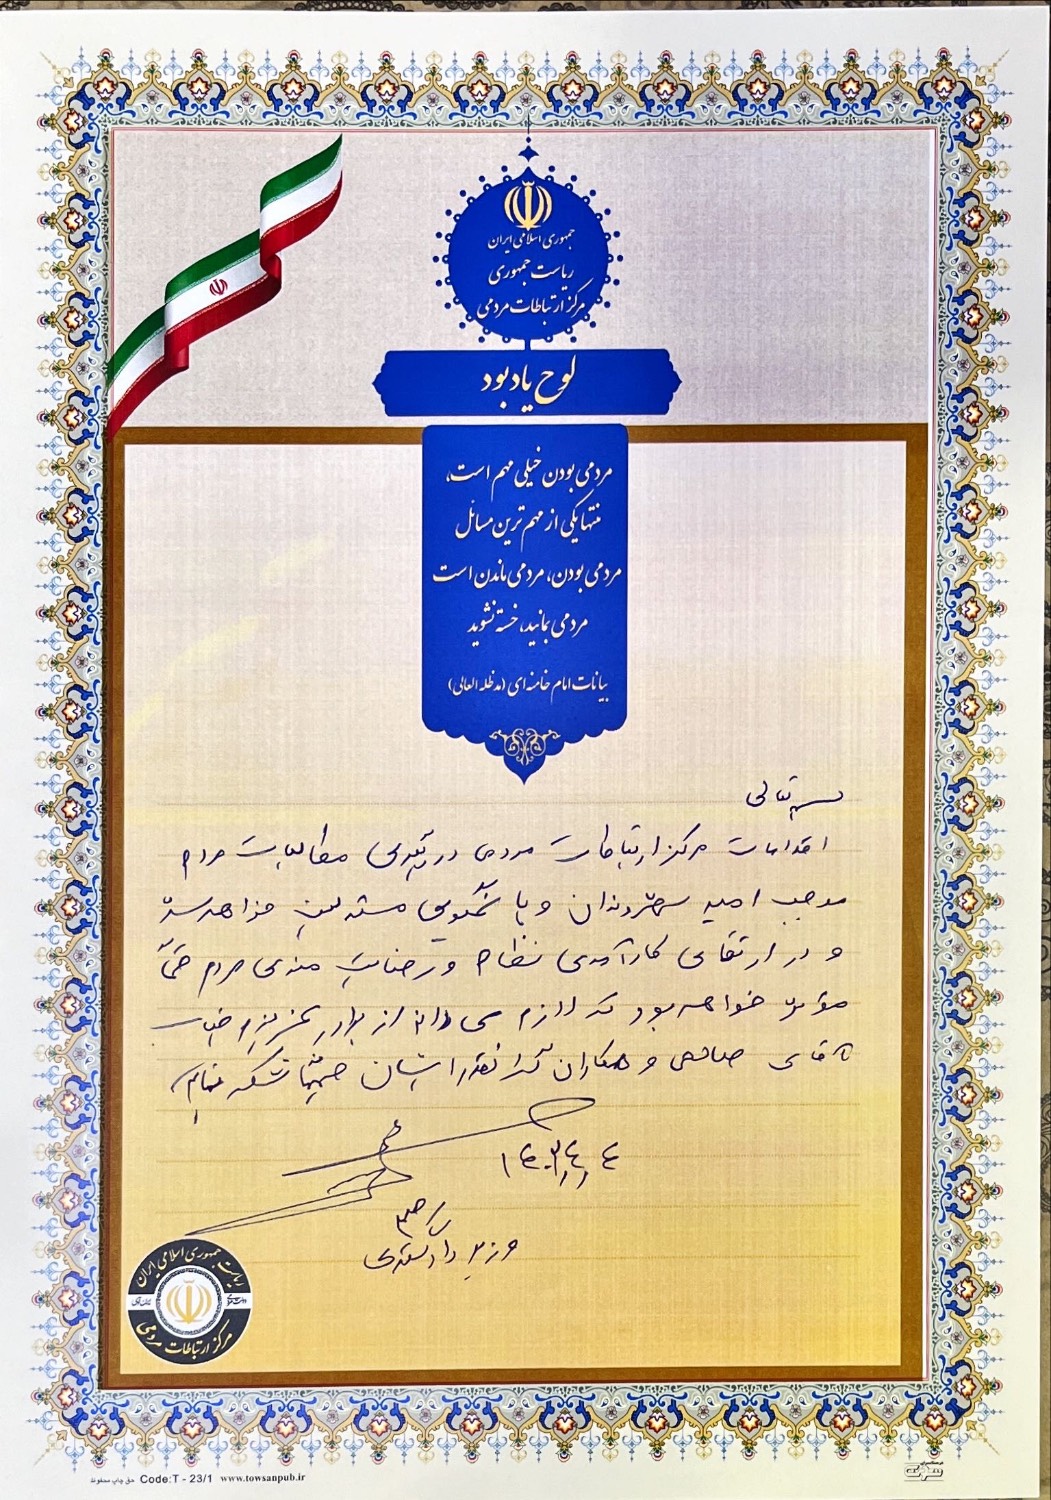 جمهوری اسلامی ایران
ریاست جمهوری
مرکز ارتباطات مردمی
لوح یادبود
مردمی بودن خیلی مهم است،
منتها یکی از مهم ترین مسائل
مردمی بودن، مردمی ماندن است
مردمی بمانید، خسته نشوید
بیانات امام خامنه ای (مدظله العالی)
بسمه تعالی
اقدامات مرکز ارتباطات مردمی در پیگیری مطالبات مردم
موجب امید شهروندان و پاسخگویی مسئولین خواهد شد
و در ارتقای کارآمدی نظام و رضایت مندی مردم حتماً
مؤثر خواهد بود که لازم می دانم از برادر عزیزم جناب
آقای صالحی و همکاران گرانقدر ایشان صمیمانه تشکر نمایم
۱۴۰۲/۴/۴
وزیر دادگستری
ریاست جمهوری اسلامی ایران
مرکز ارتباطات مردمی
حق چاپ محفوظ Code:T - 23/1 www.towsanpub.ir